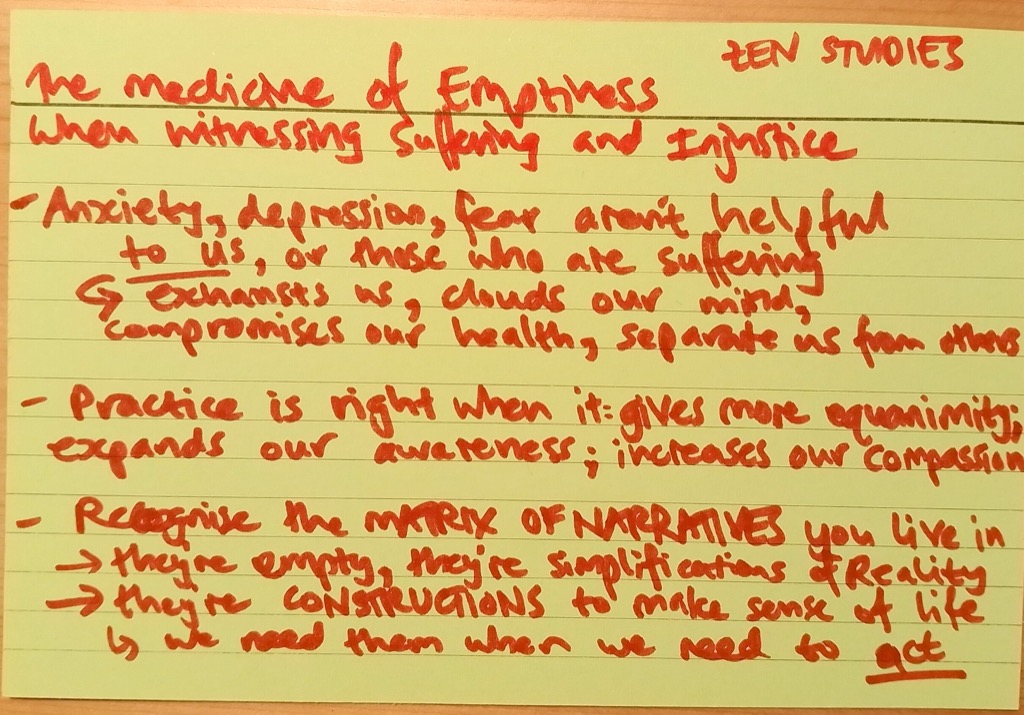 ZEN STUDIES
The medicine of Emptiness
when witnessing suffering and Injustice
- Anxiety, depression, fear aren't helpful
to us, or those who are suffering
↳ exhausts us, clouds our mind,
compromises our health, separate us from others
- Practice is right when it: gives more equanimity;
expands our awareness; increases our compassion
- Recognise the MATRIX OF NARRATIVES you live in
→ they're empty, they're simplifications of Reality
→ they're CONSTRUCTIONS to make sense of life
↳ we need them when we need to act